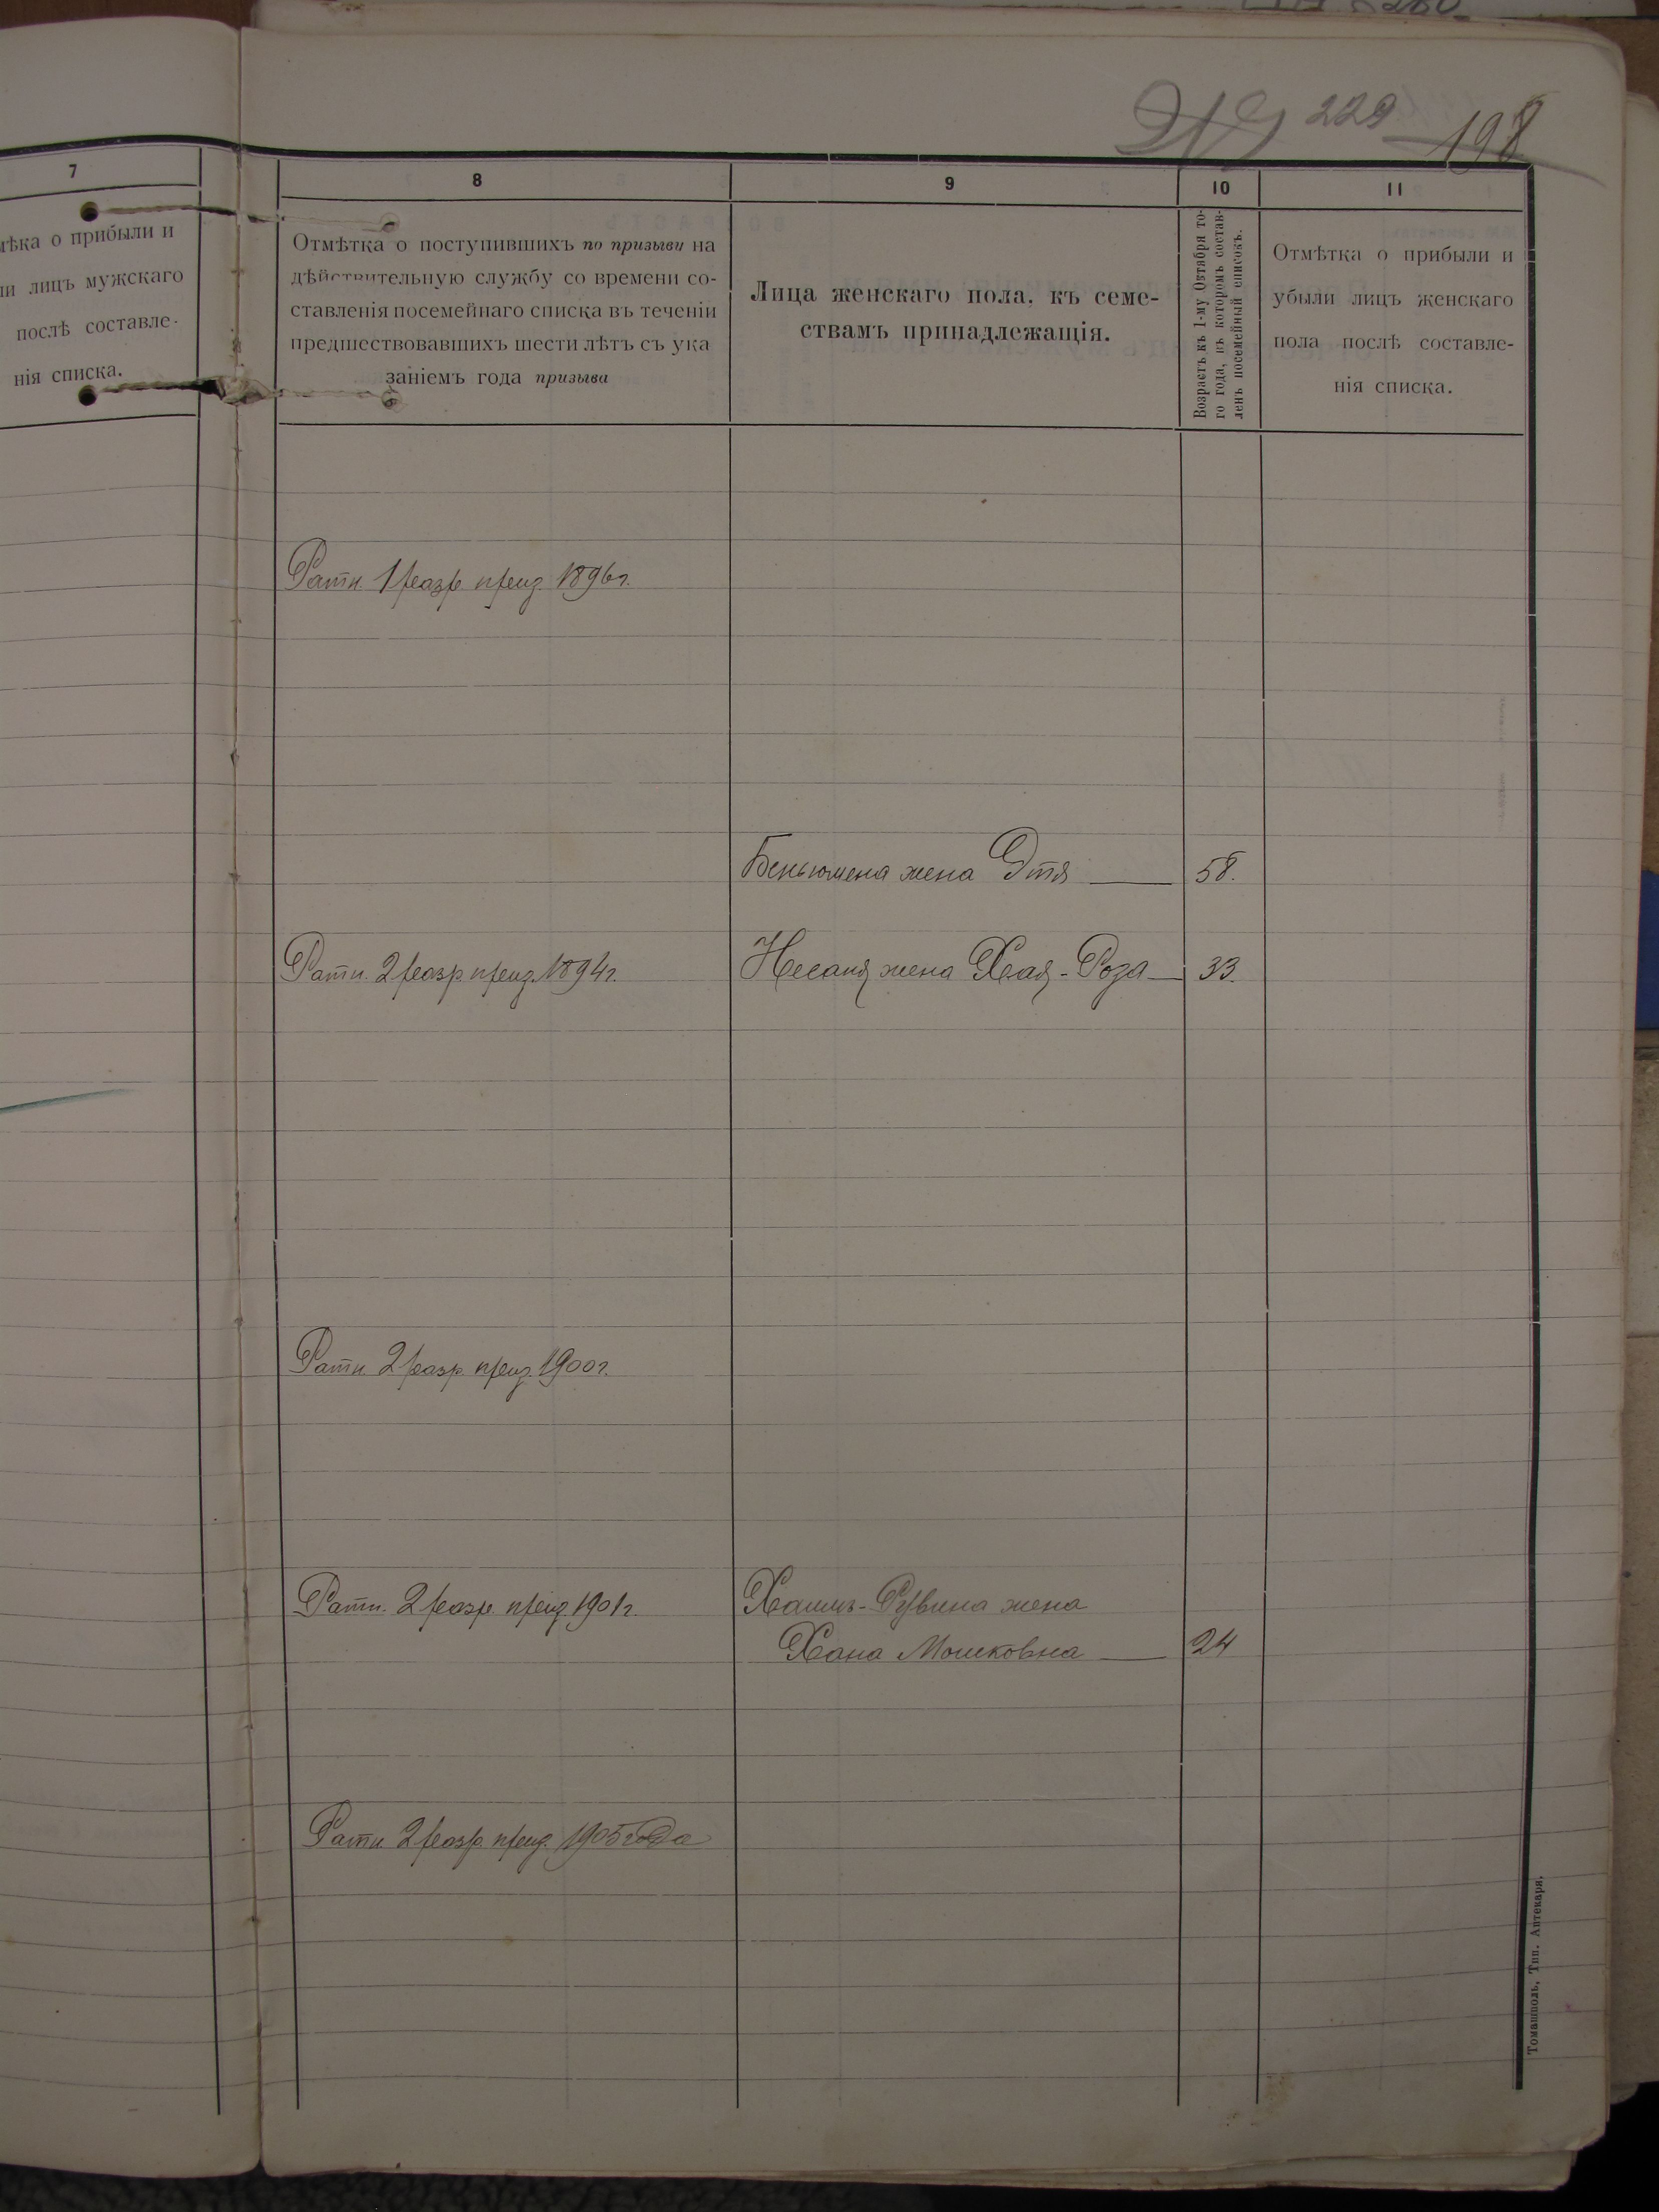 229
198
7
ѣка о прибыли и
ли лицъ мужскаго
послѣ составле-
нія списка.
8
Отмѣтка о поступившихъ по призыву на
дѣйствительную службу со времени со-
ставленія посемейнаго списка въ теченіи
предшествовавшихъ шести лѣтъ съ ука
заніемъ года призыва
9
Лица женскаго пола, къ семе-
ствамъ принадлежащія.
10
Возрастъ къ 1-му Октября то-
го года, въ которомъ состав-
ленъ посемейный списокъ.
11
Отмѣтка о прибыли и
убыли лицъ женскаго
пола послѣ составле-
нія списка.
Ратн. 1 разр. приз. 1896 г.
Беньюмена жена Этя 58.
Ратн. 2 разр. приз. 1894 г.
Несаня жена Хая-Роза 33.
Ратн. 2 разр. приз. 1900 г.
Ратн. 2 разр. приз. 1901 г.
Хаимъ-Рувина жена
Хана Мошковна 24
Ратн. 2 разр. приз. 1905 года
Томашполь, Тип. Аптекаря,